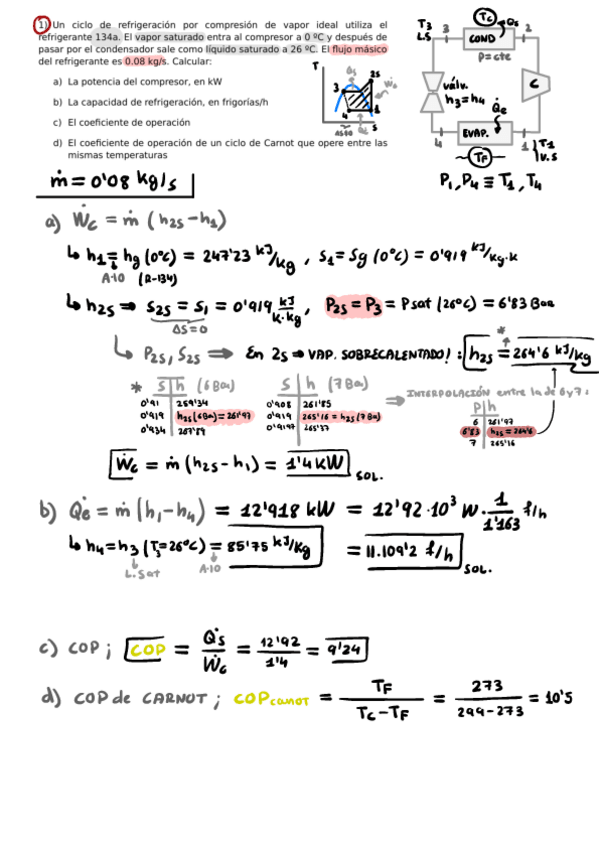 1) Un ciclo de refrigeración por compresión de vapor ideal utiliza el
refrigerante 134a. El vapor saturado entra al compresor a 0 ºC y después de
pasar por el condensador sale como líquido saturado a 26 ºC. El flujo másico
del refrigerante es 0.08 kg/s. Calcular:
a) La potencia del compresor, en kW
b) La capacidad de refrigeración, en frigorías/h
c) El coeficiente de operación
d) El coeficiente de operación de un ciclo de Carnot que opere entre las
mismas temperaturas
T
Q̇s
2s
3
Ẇc
1
4
Q̇e
s
T3
L.S
3
Tc
Q̇s
2
COND
P=cte
válv.
h3=h4
C
Q̇e
EVAP.
4
1
T1
V.S
TF
P1, P4 ≡ T1, T4
ṁ = 0'08 kg/s
a) Ẇc = ṁ (h2s-h1)
↳ h1 = hg (0ºC) = 247'23 kJ/kg , s1 = sg (0ºC) = 0'919 kJ/kg·K
A-10 (R-134)
↳ h2s ⇒ s2s = s1 = 0'919 kJ/K·kg , P2s = P3 = Psat (26ºC) = 6'83 Bar
Δs=0
↳ P2s, s2s ⇒ En 2s ⇒ VAP. SOBRECALENTADO! : h2s = 264'6 kJ/kg
*
* s | h (6 Bar)
0'91 259'34
0'919 h2s(6Bar)=261'97
0'934 267'89
s | h (7 Bar)
0'908 261'85
0'919 265'16 = h2s(7Bar)
0'9197 265'37
⇒ INTERPOLACIÓN entre la de 6 y 7:
P | h
6 261'97
6'83 h2s=264'6
7 265'16
Ẇc = ṁ (h2s-h1) = 1'4 kW SOL.
b) Q̇e = ṁ (h1-h4) = 12'918 kW = 12'92·10³ W · 1/1'163 f/h
↳ h4=h3 (T3=26ºC) = 85'75 kJ/kg = 11.109'2 f/h SOL.
L.Sat A-10
c) COP ; COP = Q̇s/Ẇc = 12'92/1'4 = 9'24
d) COP de CARNOT ; COPcarnot = TF/(Tc-TF) = 273/(299-273) = 10'5